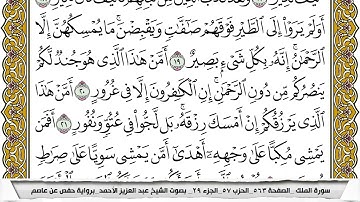 أَوَلَمْ يَرَوْا۟ إِلَى ٱلطَّيْرِ فَوْقَهُمْ صَٰٓفَّٰتٍ وَيَقْبِضْنَ ۚ مَا يُمْسِكُهُنَّ إِلَّا
ٱلرَّحْمَٰنُ ۚ إِنَّهُۥ بِكُلِّ شَىْءٍۭ بَصِيرٌ ١٩ أَمَّنْ هَٰذَا ٱلَّذِى هُوَ جُندٌ لَّكُمْ
يَنصُرُكُم مِّن دُونِ ٱلرَّحْمَٰنِ ۚ إِنِ ٱلْكَٰفِرُونَ إِلَّا فِى غُرُورٍ ٢٠ أَمَّنْ هَٰذَا
ٱلَّذِى يَرْزُقُكُمْ إِنْ أَمْسَكَ رِزْقَهُۥ ۚ بَل لَّجُّوا۟ فِى عُتُوٍّ وَنُفُورٍ ٢١ أَفَمَن
يَمْشِى مُكِبًّا عَلَىٰ وَجْهِهِۦٓ أَهْدَىٰٓ أَمَّن يَمْشِى سَوِيًّا عَلَىٰ صِرَٰطٍ
سورة الملك _ الصفحة ٥٦٣ _ الحزب ٥٧ _ الجزء ٢٩ _ بصوت الشيخ عبد العزيز الأحمد _ برواية حفص عن عاصم